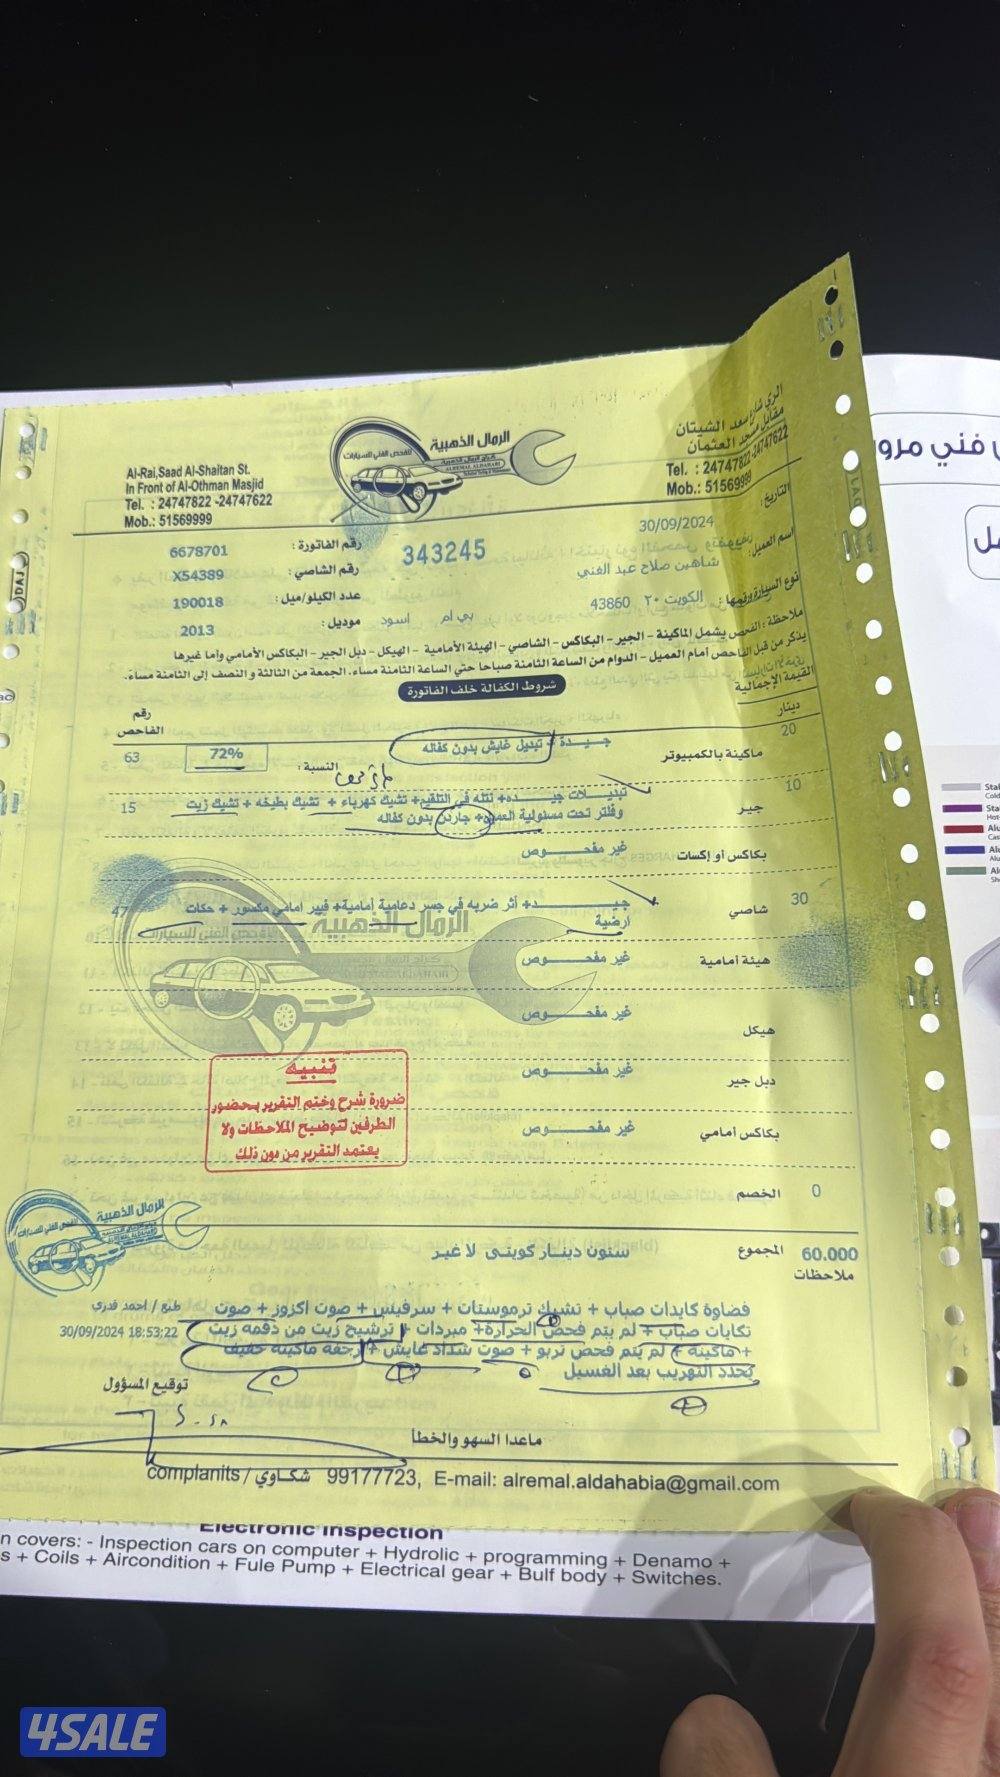 الري شارع سعد الشيتان
مقابل مسجد العثمان
Tel. : 24747822 -24747622
Mob.: 51569999
الرمال الذهبية
للفحص الفني للسيارات
AL REMAL ALDAHABI
Al-Rai,Saad Al-Shaitan St.
In Front of Al-Othman Masjid
Tel. : 24747822 -24747622
Mob.: 51569999
التاريخ : 30/09/2024
343245
رقم الفاتورة : 6678701
اسم العميل: شاهين صلاح عبد الغني
رقم الشاصي : X54389
نوع السيارة ورقمها: الكويت ٢٠ 43860 بي ام اسود
عدد الكيلو/ميل : 190018
موديل : 2013
ملاحظة : الفحص يشمل الماكينة - الجير - البكاكس - الشاصي - الهيئة الأمامية - الهيكل - دبل الجير - البكاكس الأمامي وأما غيرها
يذكر من قبل الفاحص أمام العميل - الدوام من الساعة الثامنة صباحا حتي الساعة الثامنة مساء، الجمعة من الثالثة و النصف إلى الثامنة مساء.
شروط الكفالة خلف الفاتورة
القيمة الإجمالية
دينار
رقم الفاحص
20 ماكينة بالكمبيوتر جيدة + تبديل غايش بدون كفاله
النسبة : 72% 63
10 جير تبديلات جيده+ نتله في التلقيم+ تشيك كهرباء + تشيك بطيخه + تشيك زيت
وفلتر تحت مسئولية العميل+ جاردن بدون كفاله 15
بكاكس أو إكسات غير مفحوص
30 شاصي جيد+ أثر ضربه في جسر دعامية أمامية+ فيبر امامي مكسور + حكات
ارضية 47
الرمال الذهبية
هيئة أمامية غير مفحوص
هيكل غير مفحوص
دبل جير غير مفحوص
بكاكس أمامي غير مفحوص
تنبيه
ضرورة شرح وختم التقرير بحضور
الطرفين لتوضيح الملاحظات ولا
يعتمد التقرير من دون ذلك
0 الخصم
60.000 المجموع ستون دينار كويتي لا غير
ملاحظات
الرمال الذهبية
فضاوة كايدات صباب + تشيك ترموستات + سرفيس + صوت اكزوز + صوت
تكايات صباب + لم يتم فحص الحرارة+ مبردات + ترشيح زيت من دفمه زيت
+ ماكينة + لم يتم فحص تربو + صوت شداد غايش + رجفه ماكينه خفيف
يحدد التهريب بعد الغسيل
طبع / احمد قدري
30/09/2024 18:53:22
توقيع المسؤول
ماعدا السهو والخطأ
complanits / شكاوي 99177723, E-mail: alremal.aldahabia@gmail.com
Electronic Inspection
n covers: - Inspection cars on computer + Hydrolic + programming + Denamo +
s + Coils + Aircondition + Fule Pump + Electrical gear + Bulf body + Switches.
4SALE